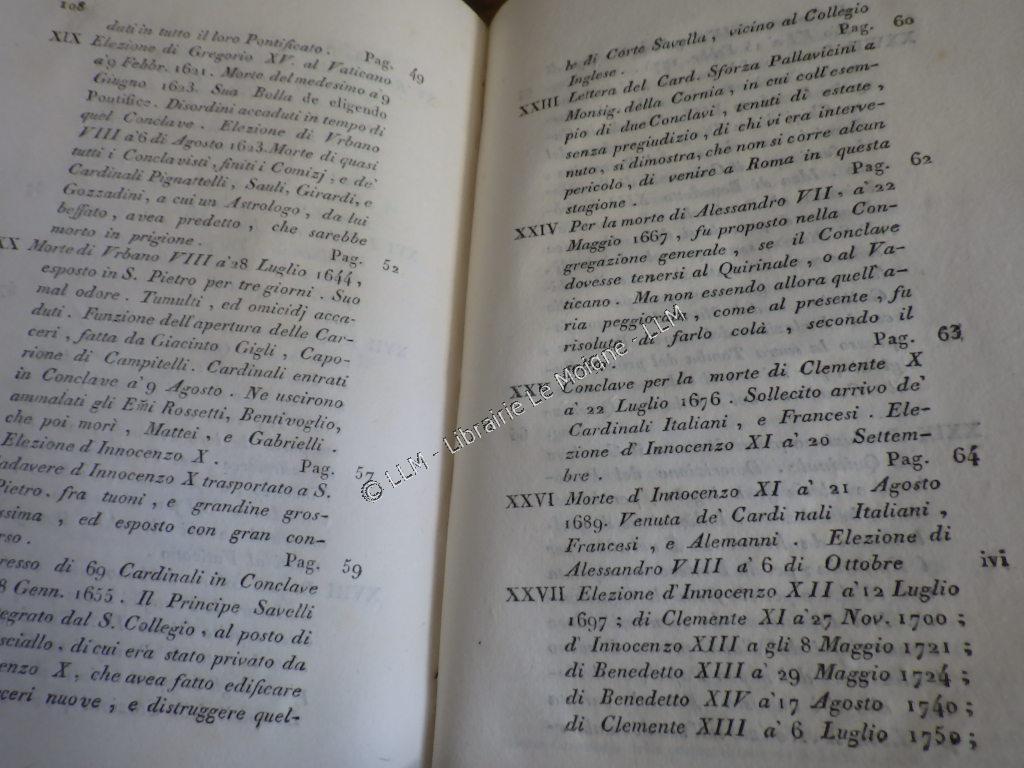 108
duti in tutto il loro Pontificato . Pag. 49
XIX Elezione di Gregorio XV. al Vaticano
a'9 Febbr. 1621. Morte del medesimo a'9
Giugno 1623. Sua Bolla de eligendo
Pontifice. Disordini accaduti in tempo di
quel Conclave . Elezione di Vrbano
VIII a'6 di Agosto 1623. Morte di quasi
tutti i Conclavisti, finiti i Comizj, e de'
Cardinali Pignattelli, Sauli, Girardi, e
Gozzadini, a cui un Astrologo, da lui
beffato, avea predetto, che sarebbe
morto in prigione . Pag. 52
XX Morte di Vrbano VIII a'28 Luglio 1644,
esposto in S. Pietro per tre giorni . Suo
mal odore. Tumulti, ed omicidj acca-
duti. Funzione dell'apertura delle Car-
ceri, fatta da Giacinto Gigli, Capo-
rione di Campitelli. Cardinali entrati
in Conclave a'9 Agosto . Ne uscirono
ammalati gli Em̃i Rossetti, Bentivoglio,
che poi morì, Mattei, e Gabrielli .
Elezione d'Innocenzo X . Pag. 57
Cadavere d'Innocenzo X trasportato a S.
Pietro. fra tuoni, e grandine gros-
sissima, ed esposto con gran con-
rso. Pag. 59
resso di 69 Cardinali in Conclave
8 Genn. 1655. Il Principe Savelli
egrato dal S. Collegio, al posto di
sciallo, di cui era stato privato da
enzo X, che avea fatto edificare
ceri nuove, e distruggere quel-
le di Corte Savella, vicino al Collegio
Inglese . Pag. 60
XXIII Lettera del Card. Sforza Pallavicini a
Monsig. della Cornia, in cui coll'esem-
pio di due Conclavi, tenuti di estate,
senza pregiudizio, di chi vi era interve-
nuto, si dimostra, che non si corre alcun
pericolo, di venire a Roma in questa
stagione . Pag. 62
XXIV Per la morte di Alessandro VII, a'22
Maggio 1667, fu proposto nella Con-
gregazione generale, se il Conclave
dovesse tenersi al Quirinale, o al Va-
ticano. Ma non essendo allora quell'a-
ria peggiorata, come al presente, fu
risoluto di farlo colà, secondo il
Pag. 63
XXV Conclave per la morte di Clemente X
a'22 Luglio 1676. Sollecito arrivo de'
Cardinali Italiani, e Francesi. Ele-
zione d'Innocenzo XI a'20 Settem-
bre . Pag. 64
XXVI Morte d'Innocenzo XI a'21 Agosto
1689. Venuta de' Cardi nali Italiani,
Francesi, e Alemanni . Elezione di
Alessandro VIII a'6 di Ottobre ivi
XXVII Elezione d'Innocenzo XII a'12 Luglio
1697; di Clemente XI a'27 Nov. 1700;
d'Innocenzo XIII a gli 8 Maggio 1721;
di Benedetto XIII a'29 Maggio 1724;
di Benedetto XIV a'17 Agosto 1740;
di Clemente XIII a'6 Luglio 1750;
© LLM - Librairie Le Moigne - LLM